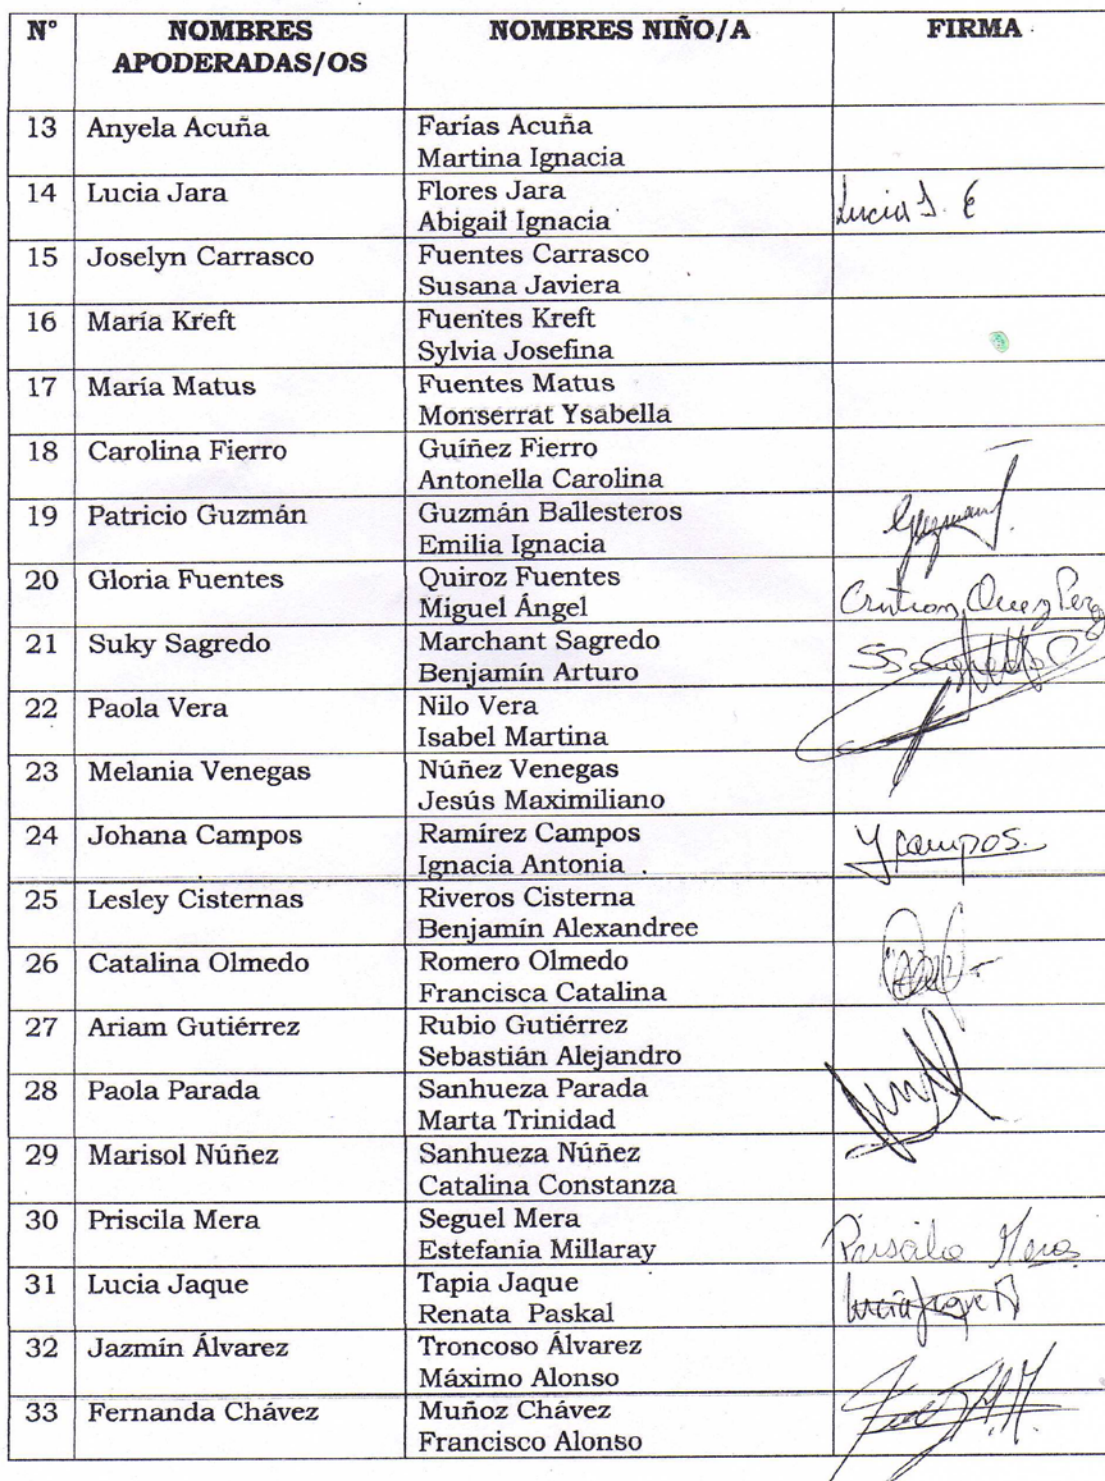 N° NOMBRES APODERADAS/OS NOMBRES NIÑO/A FIRMA
13 Anyela Acuña Farías Acuña
Martina Ignacia
14 Lucia Jara Flores Jara Lucia J. E
Abigail Ignacia
15 Joselyn Carrasco Fuentes Carrasco
Susana Javiera
16 María Kreft Fuentes Kreft
Sylvia Josefina
17 María Matus Fuentes Matus
Monserrat Ysabella
18 Carolina Fierro Guíñez Fierro
Antonella Carolina
19 Patricio Guzmán Guzmán Ballesteros Guzman
Emilia Ignacia
20 Gloria Fuentes Quiroz Fuentes
Miguel Ángel
21 Suky Sagredo Marchant Sagredo
Benjamín Arturo
22 Paola Vera Nilo Vera
Isabel Martina
23 Melania Venegas Núñez Venegas
Jesús Maximiliano
24 Johana Campos Ramírez Campos Y campos.
Ignacia Antonia
25 Lesley Cisternas Riveros Cisterna
Benjamín Alexandree
26 Catalina Olmedo Romero Olmedo
Francisca Catalina
27 Ariam Gutiérrez Rubio Gutiérrez
Sebastián Alejandro
28 Paola Parada Sanhueza Parada
Marta Trinidad
29 Marisol Núñez Sanhueza Núñez
Catalina Constanza
30 Priscila Mera Seguel Mera Priscila Mera
Estefanía Millaray
31 Lucia Jaque Tapia Jaque Lucia Jaque
Renata Paskal
32 Jazmín Álvarez Troncoso Álvarez
Máximo Alonso
33 Fernanda Chávez Muñoz Chávez
Francisco Alonso